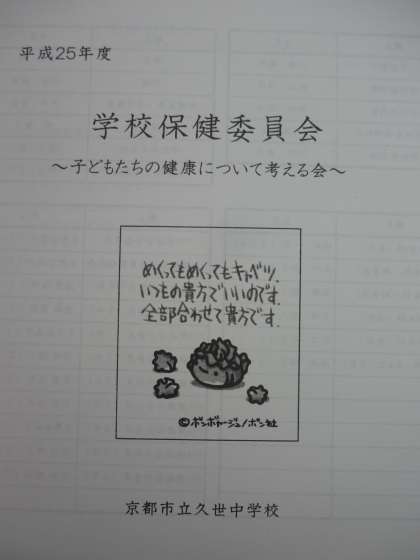 平成25年度
学校保健委員会
～子どもたちの健康について考える会～
めくってもめくってもキャベツ.
いつもの貴方でいいのです.
全部合わせて貴方です.
©ボンボヤージュ/ボン社
京都市立久世中学校